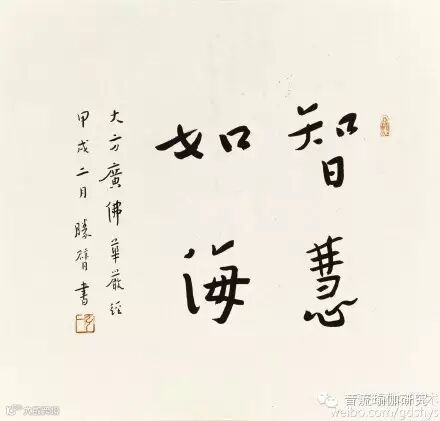 智慧
如海
大方廣佛華嚴經
甲戌二月勝臂書
音流瑜伽研究
weibo.com/gdshys